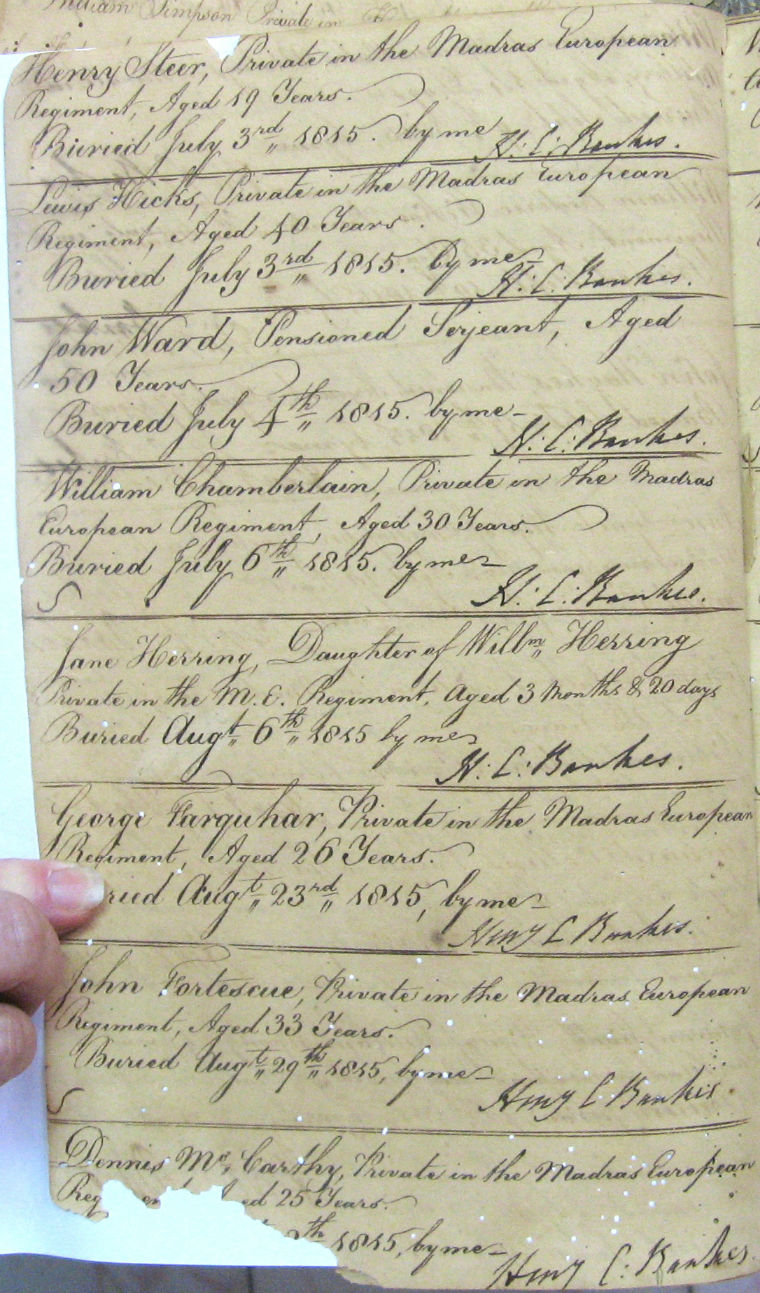 William Simpson Private in
Henry Steer, Private in the Madras European
Regiment, Aged 19 Years.
Buried July 3rd 1815. by me
H: C: Bankes.
Lewis Hicks, Private in the Madras European
Regiment, Aged 40 Years.
Buried July 3rd 1815. By me
H: C: Bankes.
John Ward, Pensioned Serjeant, Aged
50 Years.
Buried July 4th 1815. by me
H: C: Bankes.
William Chamberlain, Private in the Madras
European Regiment, Aged 30 Years.
Buried July 6th 1815. by me
H: C: Bankes.
Jane Herring, Daughter of Willm Herring
Private in the M. E. Regiment, aged 3 Months & 20 days
Buried Augt 6th 1815 by me
H: C: Bankes.
George Farquhar, Private in the Madras European
Regiment, Aged 26 Years.
ried Augt 23rd 1815, by me
Henry C Bankes.
John Fortescue, Private in the Madras European
Regiment, Aged 33 Years.
Buried Augt 29th 1815, by me
Henry C Bankes.
Dennis Mc Carthy, Private in the Madras European
Reg ed 25 Years.
th 1815, by me
Henry C: Bankes.